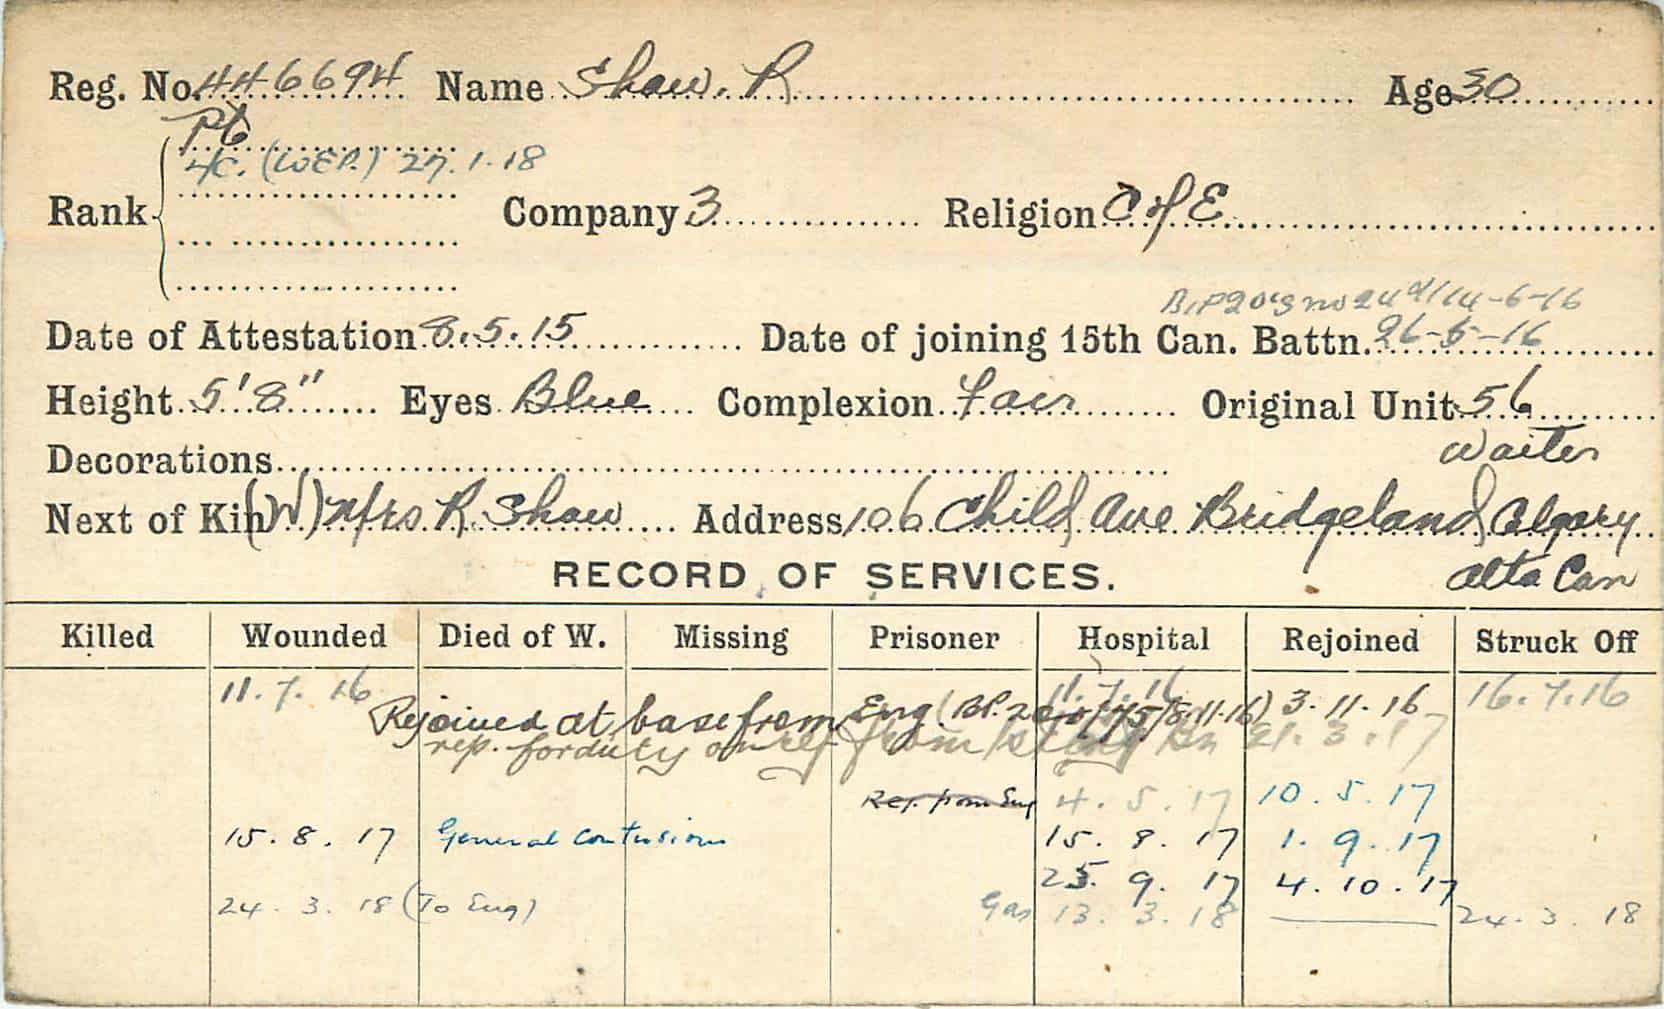 Reg. No. 446694 Name Shaw. R Age 30
Pt
(WEP.) 27.1.18
Rank Company 3 Religion C of E
14-6-16
Date of Attestation 8.5.15 Date of joining 15th Can. Battn. 26-5-16
Height 5'8" Eyes Blue Complexion Fair Original Unit 56
Decorations waiter
Next of Kin (W) Mrs R. Shaw Address 106 Child Ave Bridgeland Calgary
RECORD OF SERVICES. Alta Can
Killed Wounded Died of W. Missing Prisoner Hospital Rejoined Struck Off
11.7.16 11.7.16 3.11.16 16.7.16
Rejoined at base from Eng (
rep. for duty from 21.3.17
Rej. from Eng 4.5.17 10.5.17
15.8.17 General contusions 15.8.17 1.9.17
25.9.17 4.10.17
24.3.18 (To Eng) Gas 13.3.18 24.3.18